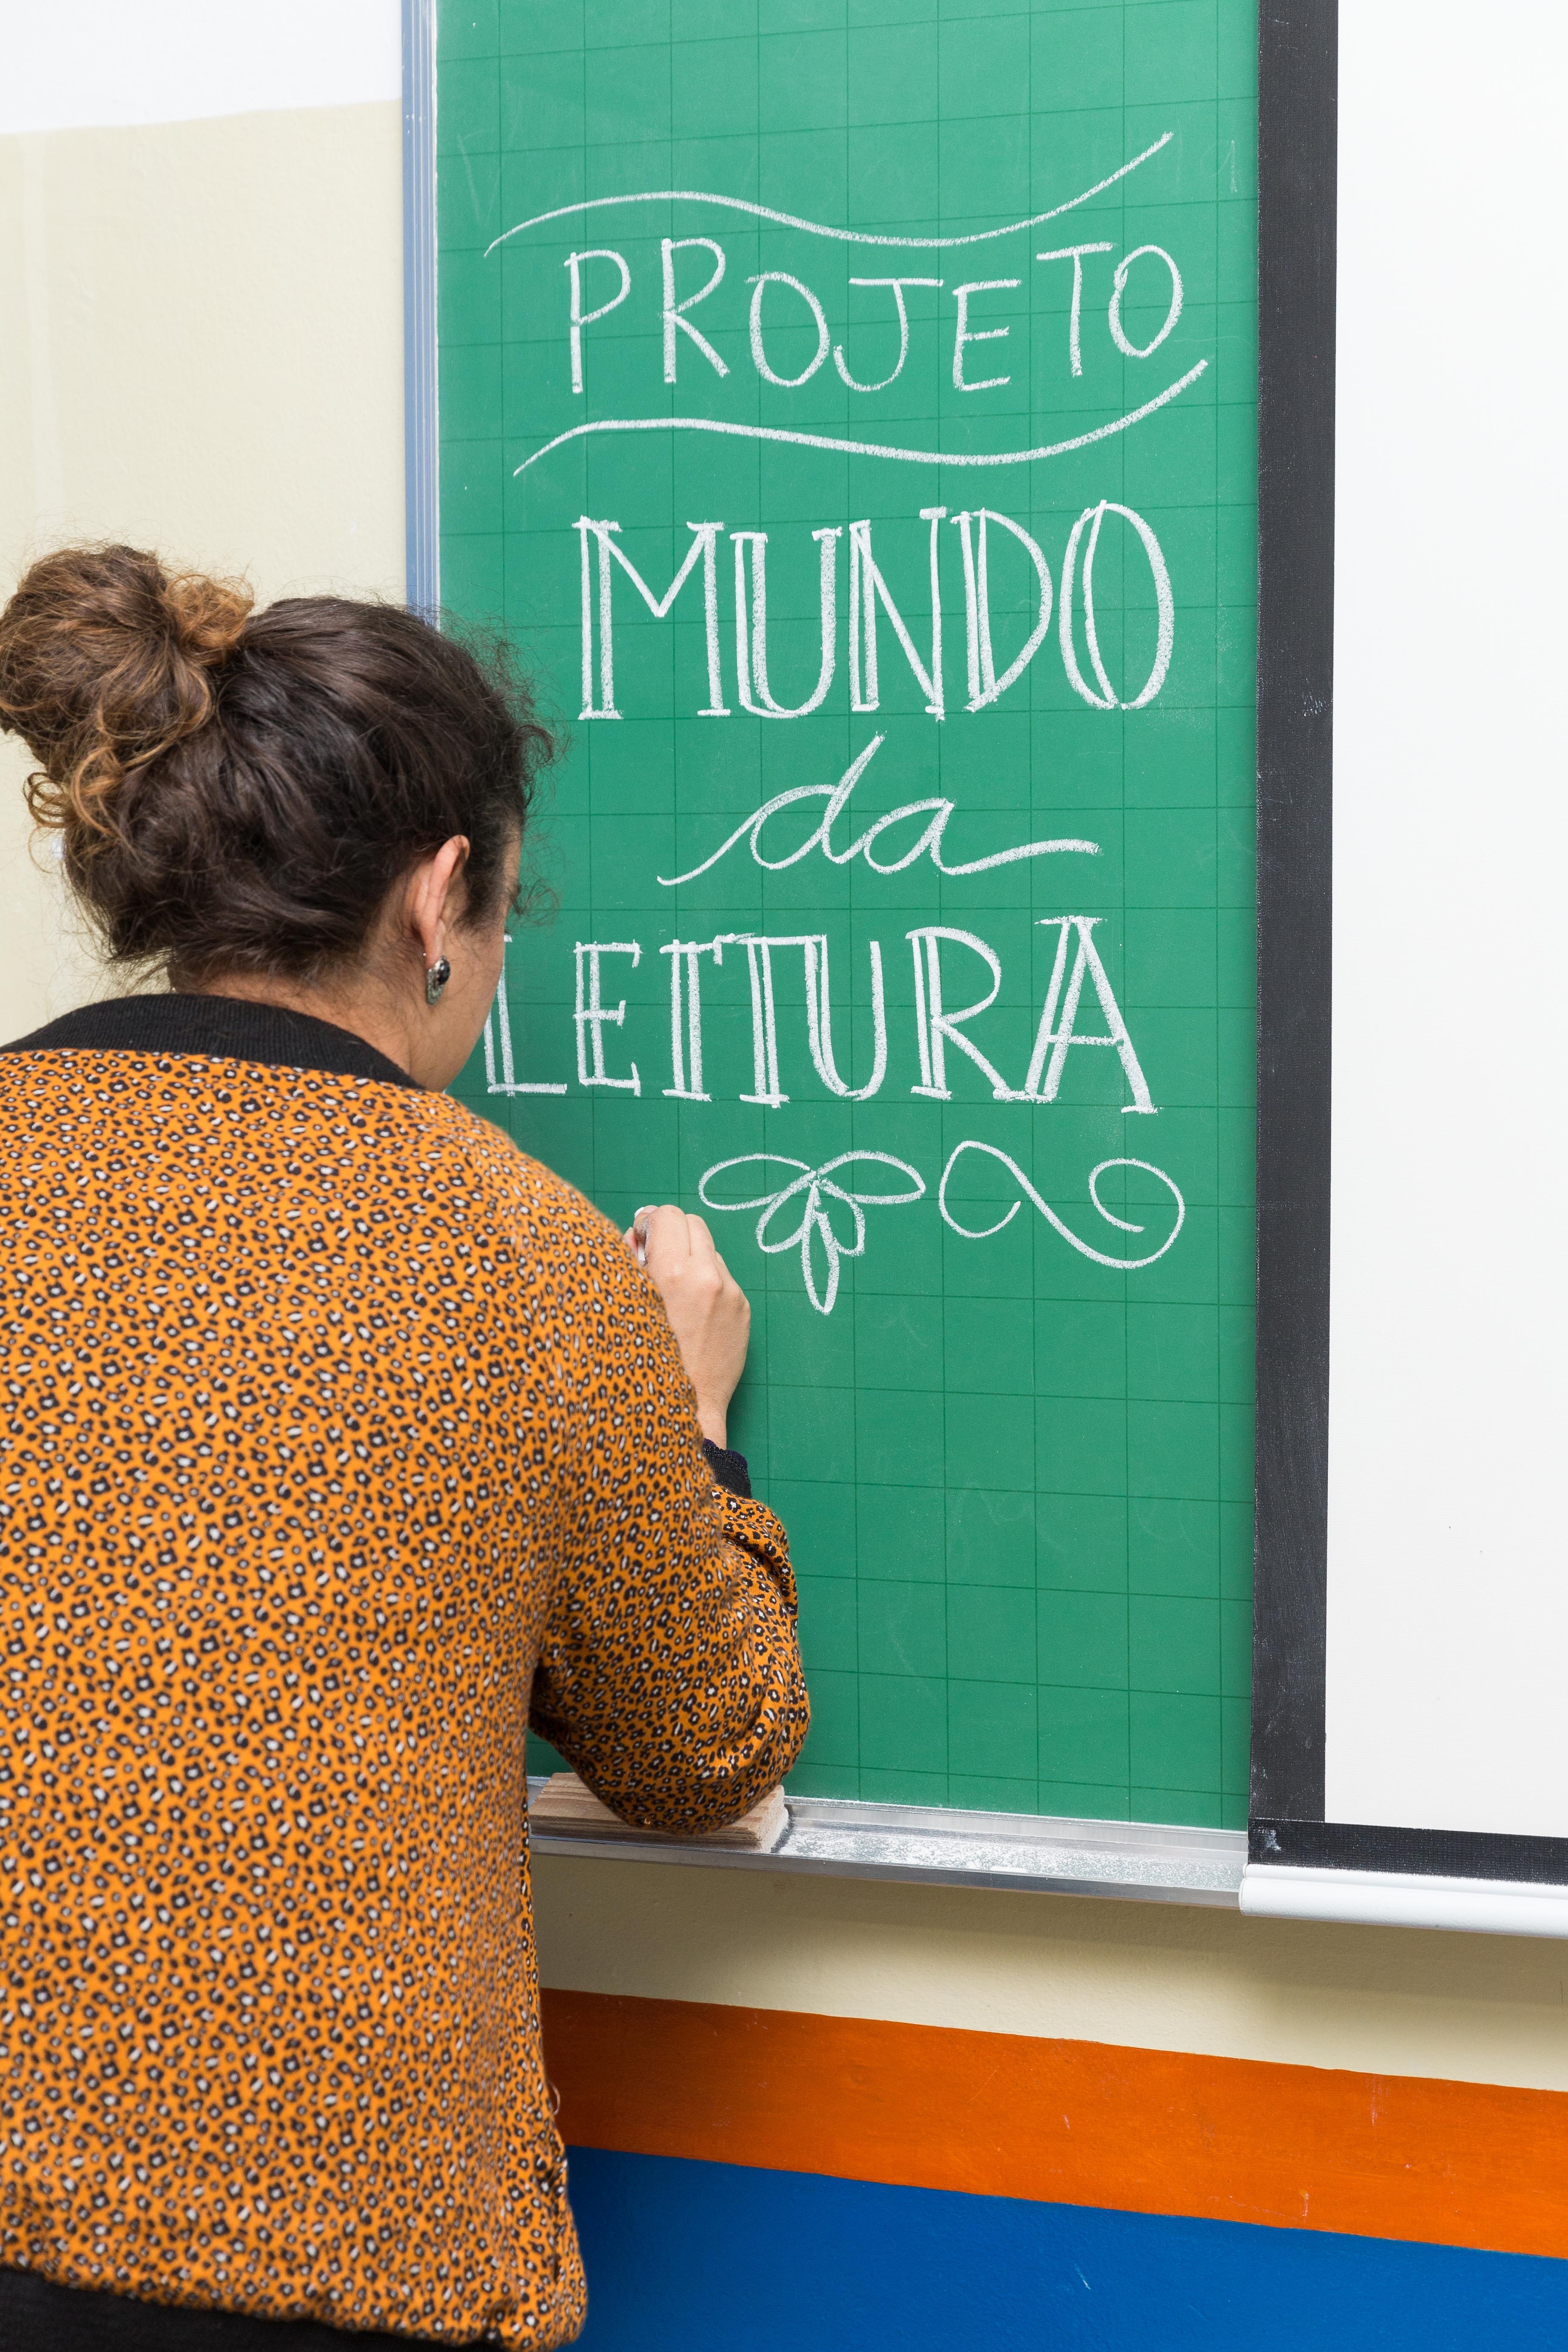 PROJETO
MUNDO
da
LEITURA